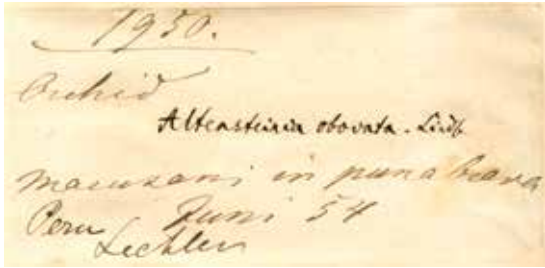 1930.
Orchid
Altensteinia obovata. Lindl.
macusani in puna brava
Peru Juni 54
Lechler